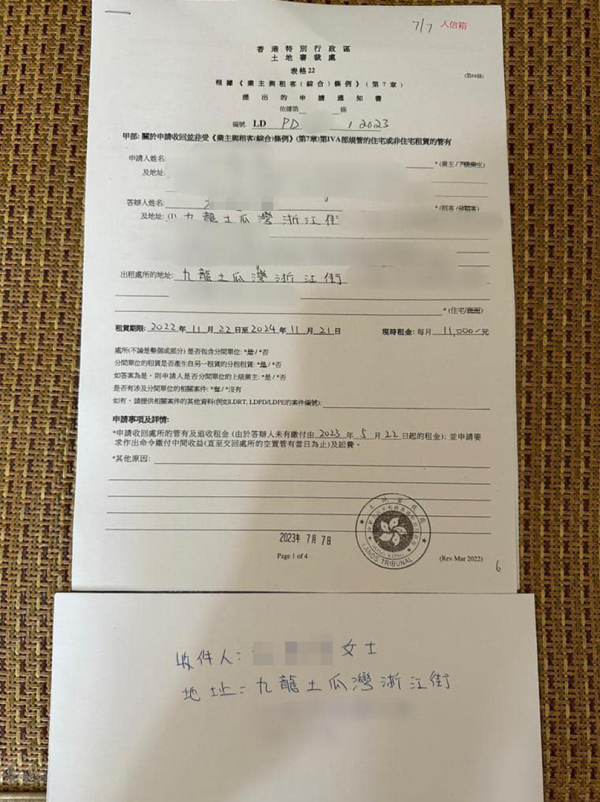 7/7 人信箱
香港特別行政區
土地審裁處
表格22
(第68條)
根據《業主與租客(綜合)條例》(第7章)
提出的申請通知書
依據第 條
編號 LD PD / 2023
甲部: 關於申請收回並非受《業主與租客(綜合)條例》(第7章)第IVA部規管的住宅或非住宅租賃的管有
申請人姓名:
及地址: *(業主/
答辯人姓名:
及地址: (1) 九龍土瓜灣浙江街 *(租客/分租客)
出租處所的地址: 九龍土瓜灣浙江街
*(住宅/
租賃期限: 2022 年 11 月 22 日至 2024 年 11 月 21 日 現時租金: 每月 11,000/元
處所(不論是整個或部分) 是否包含分間單位: *是/*否
分間單位的租賃是否產生自另一租賃的分租租賃: *是/*否
如答案為是，則申請人是否分間單位的上級業主: *是/*否
是否有涉及分間單位的相關案件: *有/*沒有
如有，請提供相關案件的其他資料(例如LDRT, LDPD/LDPE的案件編號):
申請事項及詳情:
*申請收回處所的管有及追收租金 (由於答辯人未有繳付由 2023 年 5 月 22 日起的租金); 並申請要
求作出命令繳付中間收益(直至交回處所的空置管有當日為止)及訟費。
*其他原因:
土地審裁處
HONG KONG
LANDS TRIBUNAL
2023年 7月 7日
Page 1 of 4
(Rev Mar 2022)
6
收件人: 女士
地址: 九龍土瓜灣浙江街